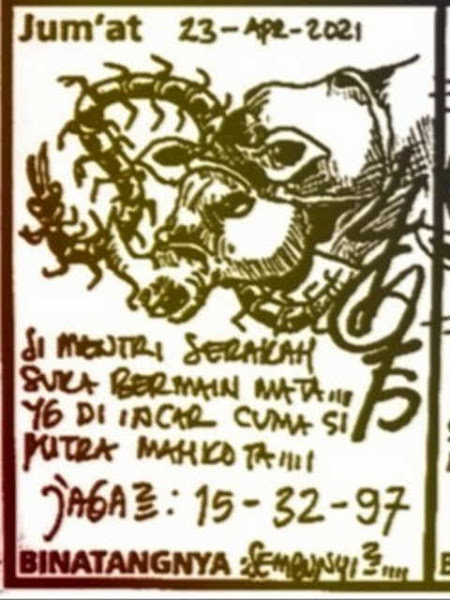 Jum'at 23-APR-2021
SI MENTRI SERAKAH
SUKA BERMAIN MATA....
YG DI INCAR CUMA SI
PUTRA MAHKOTA....
JAGA2 : 15 - 32 - 97
BINATANGNYA : SEMBUNYI2....